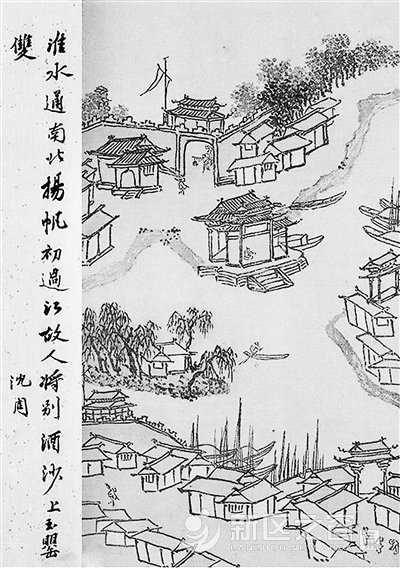 淮水通南北揚帆初過江故人將別酒沙上玉罌
雙
沈周
新区之